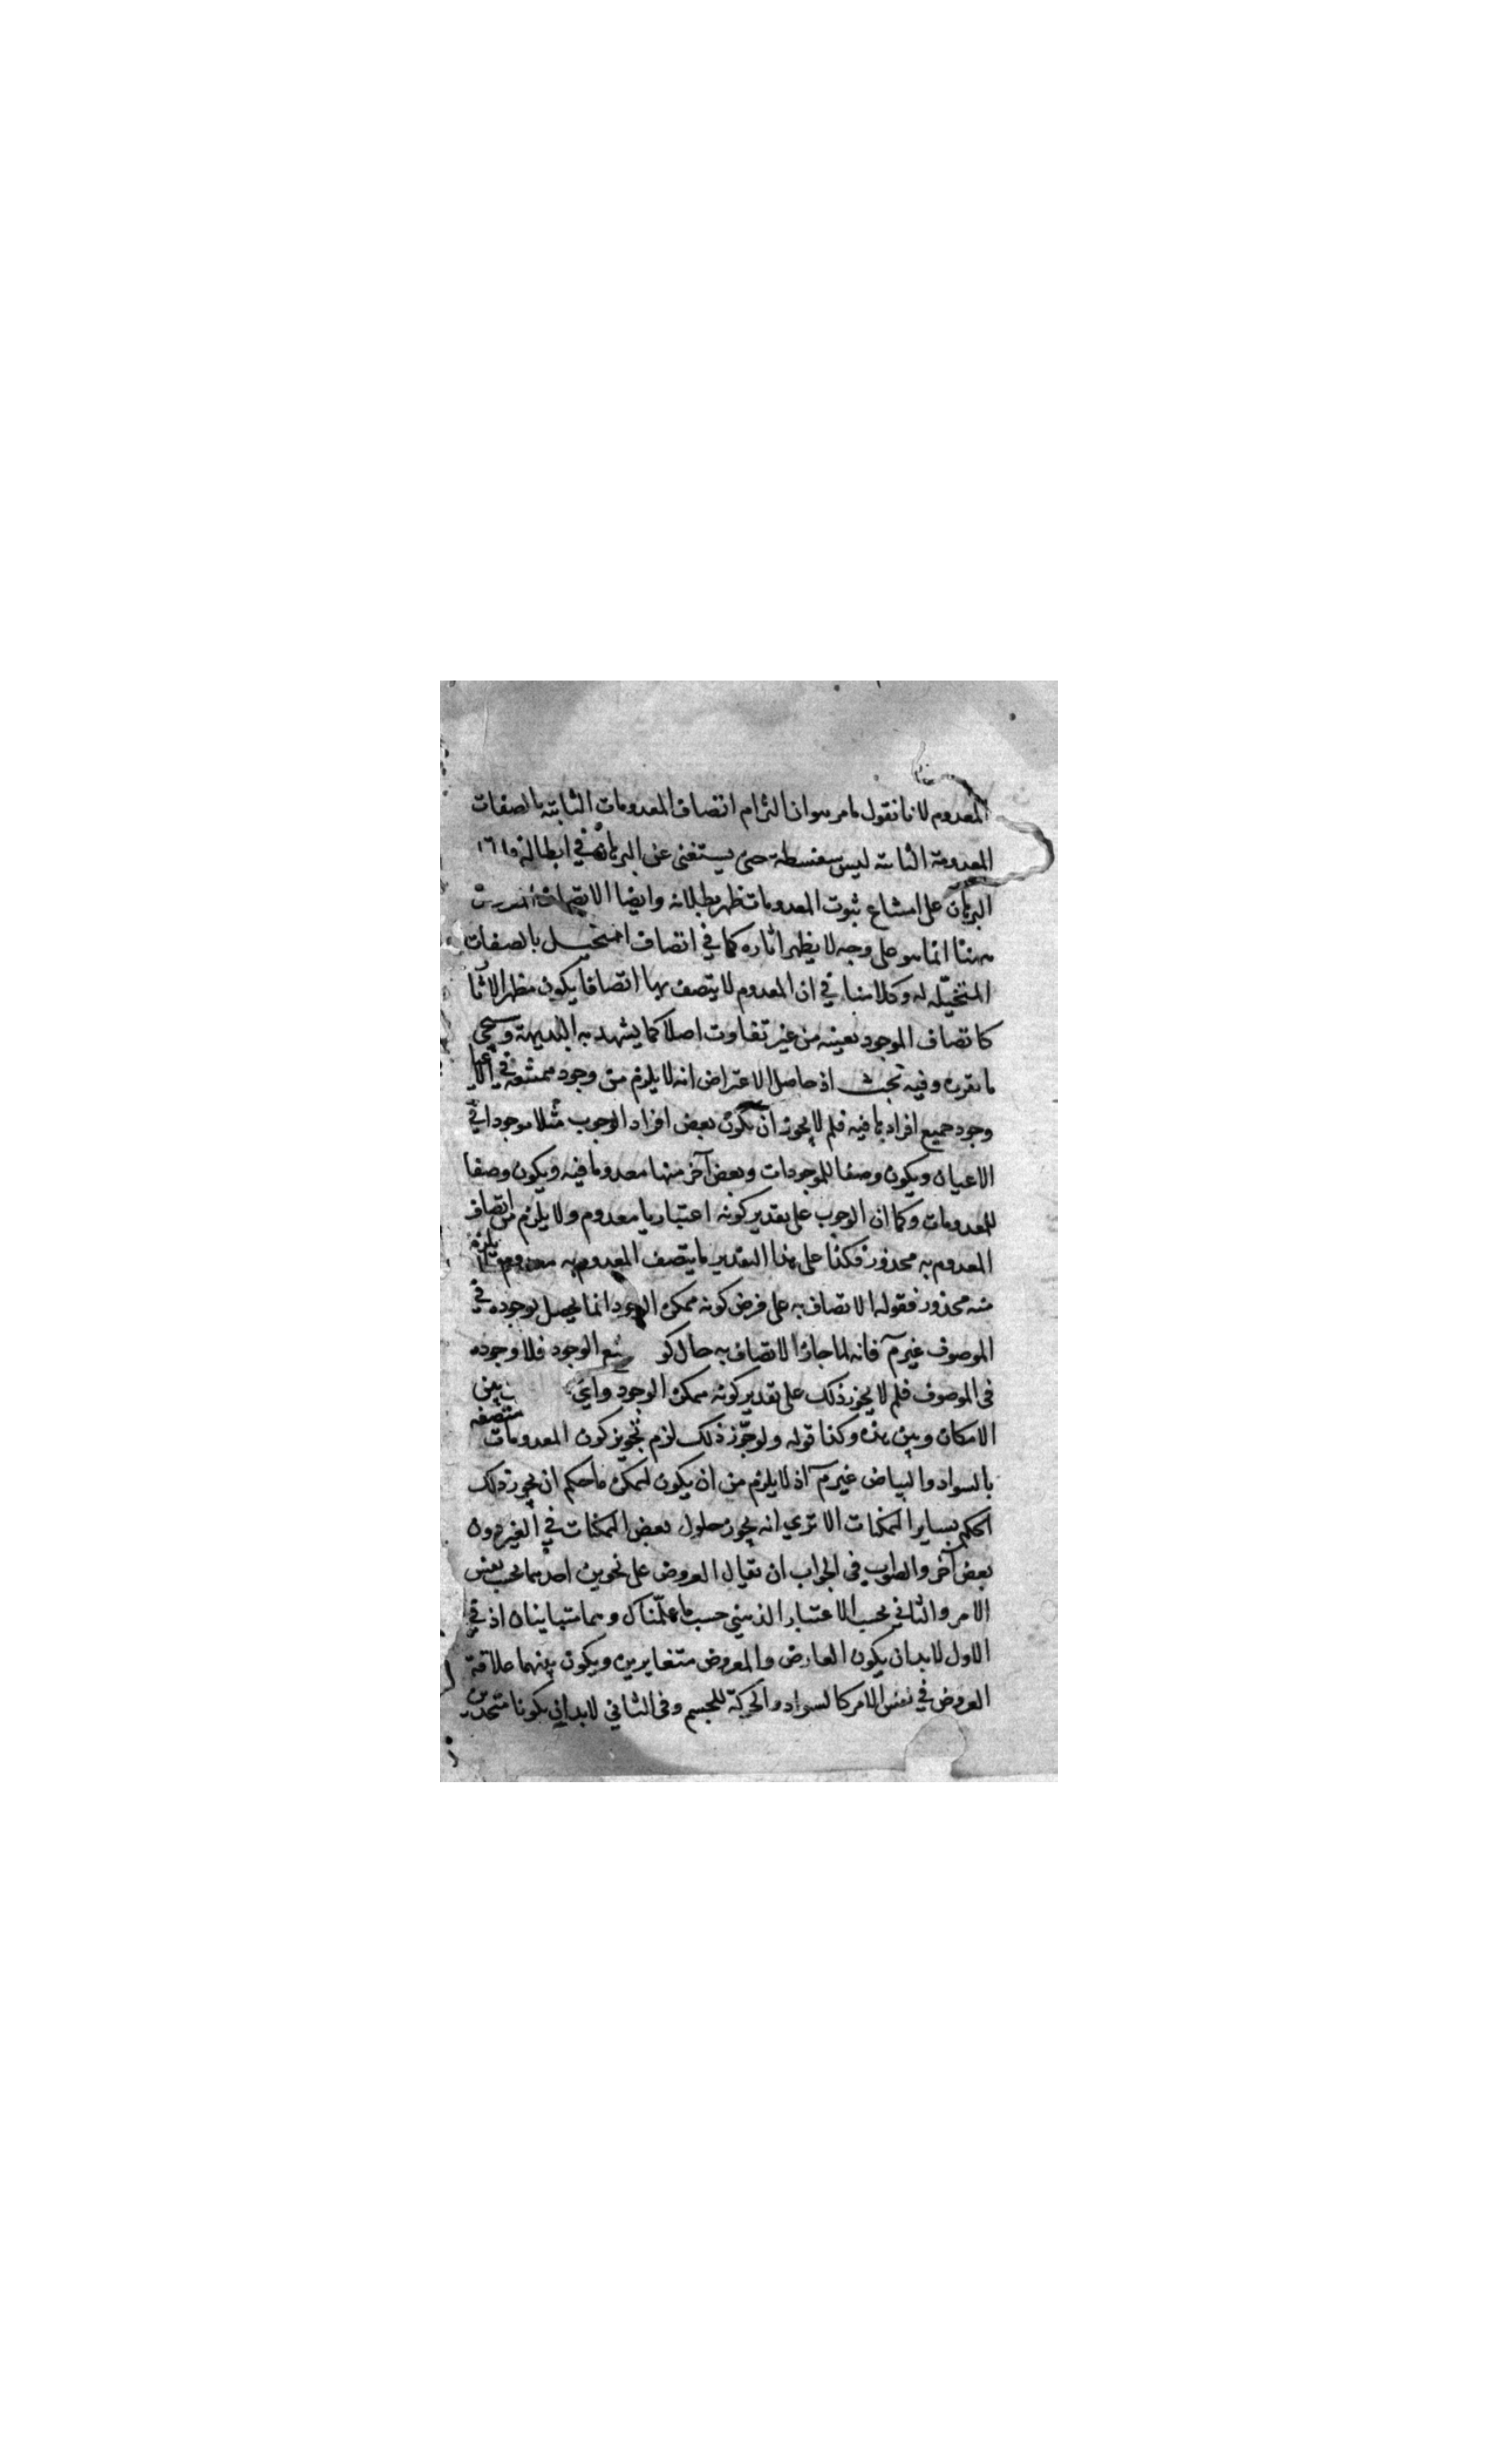 المعدوم لانا نقول ما مر هو ان التزام اتصاف المعدومات الثابته بالصفات
المعدومة الثابته ليس سفسطة حتى يستغنى عن البرهان في ابطاله واذا
البرهان على امتناع ثبوت المعدومات ظهر بطلانه وايضا الاتصاف
ههنا انما هو على وجه لا يظهر اثاره كما في اتصاف المتخيل بالصفات
المتخيّله له وكلامنا في ان المعدوم لا يتصف بها اتصافا يكون مظهر الاثار
كاتصاف الموجود بعينه من غير تفاوت اصلا كما يشهد به البديهة وسيجي
ما يقرره وفيه بحث اذ حاصل الاعتراض انه لا يلزم من وجود في الاعيان
وجود جميع افراد ما فيه فلم لا يجوز ان يكون بعض افراد الوجوب مثلا موجودا في
الاعيان ويكون وصفا للموجودات وبعض آخر منها معدوما فيه ويكون وصفا
للمعدومات وكما ان الوجوب على تقدير كونه اعتباريا معدوم ولا يلزم من اتصاف
المعدوم به محذور فكذا على هذا التقدير ما يتصف المعدوم به معدوم يلزم
منه محذور فقوله الاتصاف به على فرض كونه ممكن الوجود انما يحصل بوجوده في
الموصوف غير مآ فانه لما جاز الاتصاف به حال الوجود فلا وجوده
في الموصوف فلم لا يجوز ذلك على تقدير كونه ممكن الوجود واي بين
الامكان وبين هذه وكذا قوله ولو جوّز ذلك لزم تجويز كون المعدومات متصفه
بالسواد والبياض غير مآ اذ لا يلزم من ان يكون لممكن ما حكم ان يجوز ذلك
الحكم بساير الممكنات الا ترى انه يجوز حلول بعض الممكنات في الغير دون
بعض آخر والصواب في الجواب ان يقال العروض على نحوين احدهما بحسب نفس
الامر والثاني بحسب الاعتبار الذهني حسب ما علّمناك وهما متباينان اذ في
الاول لابد ان يكون العارض والمعروض متغايرين ويكون بينهما علاقة
العروض في نفس الامر كالسواد والحركة للجسم وفي الثاني لابد ان يكونا متحدين